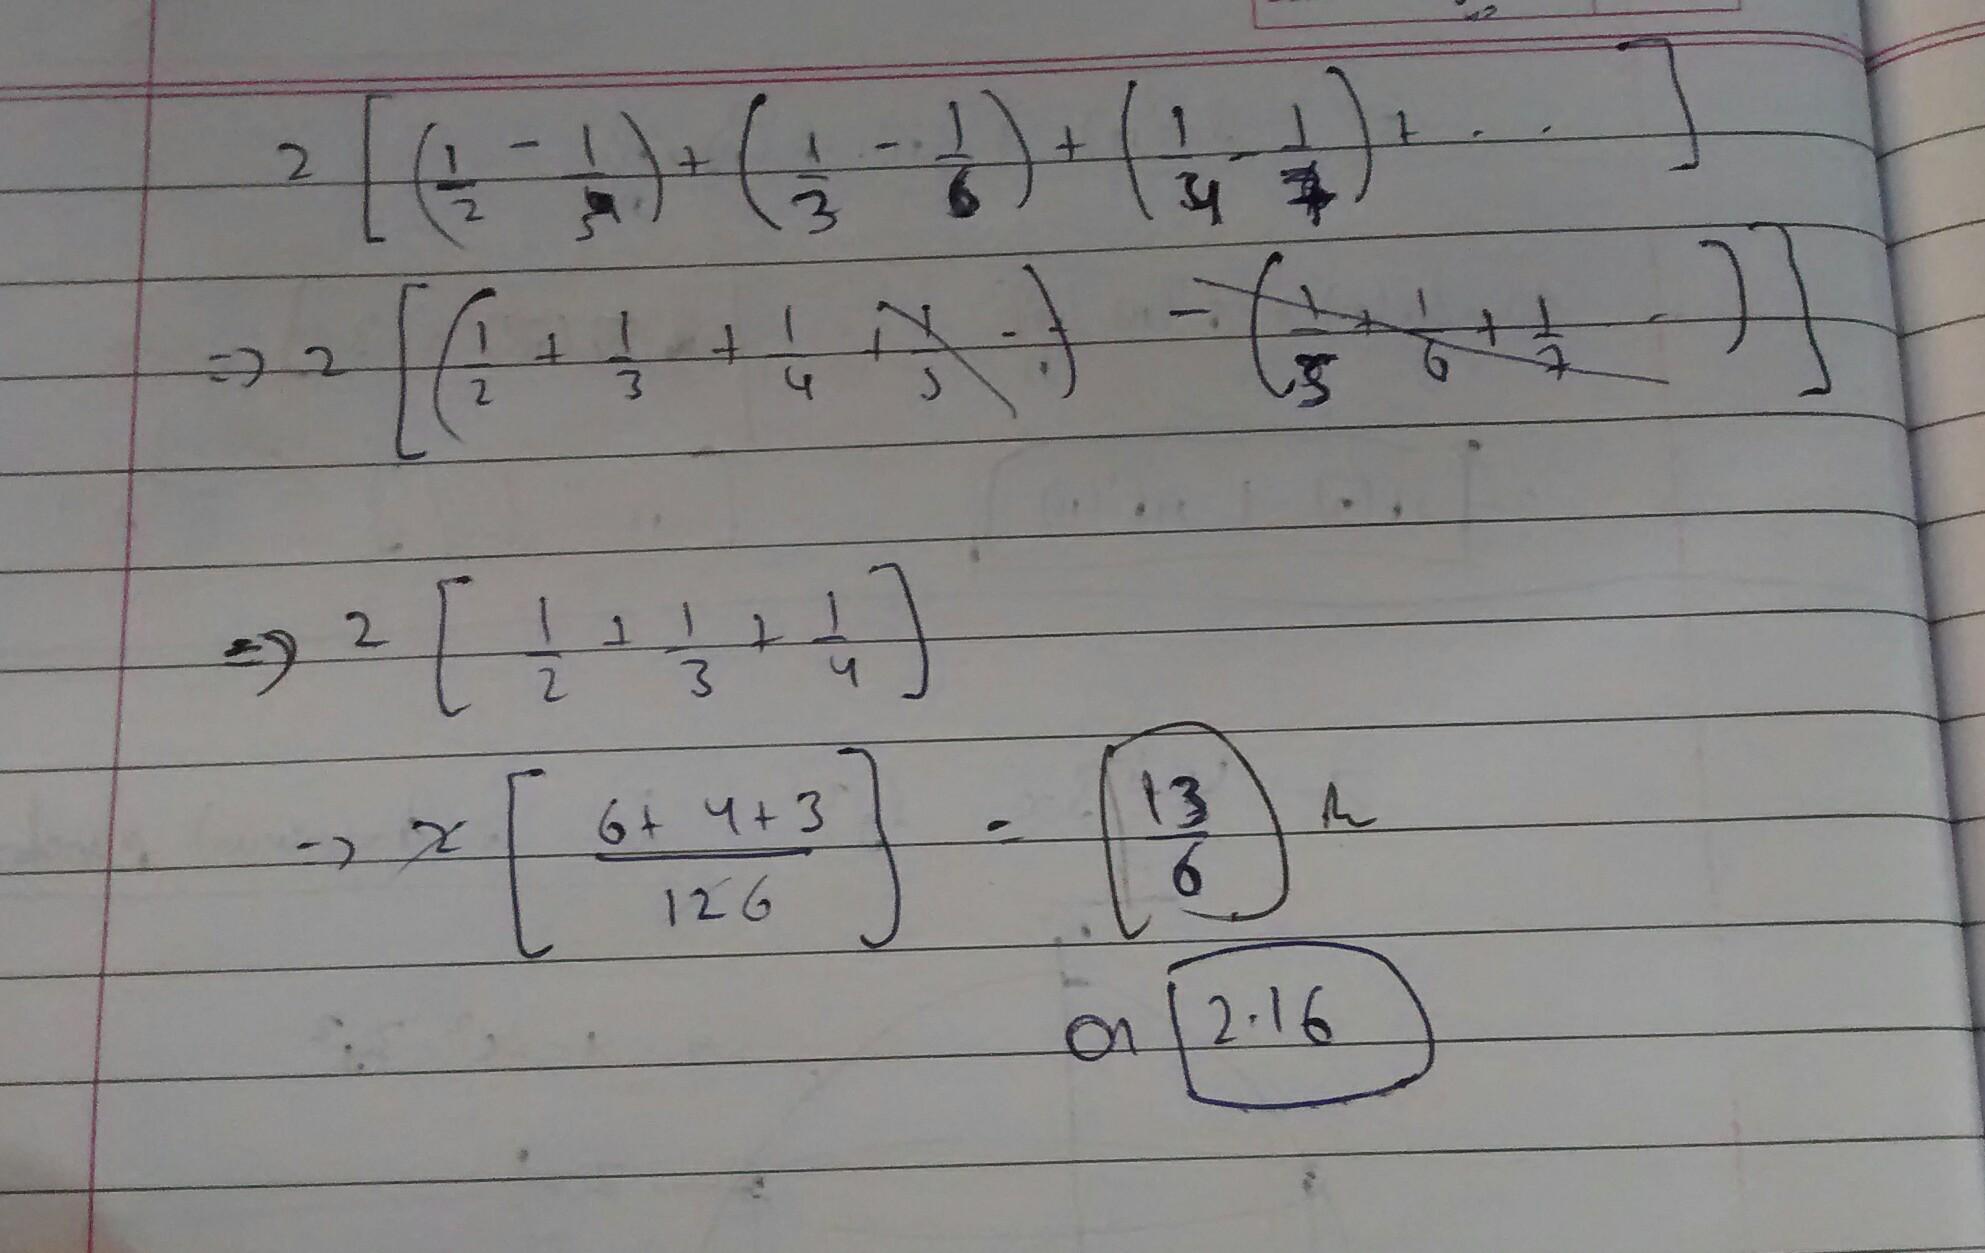 2 [ (1/2 - 1/5) + (1/3 - 1/6) + (1/4 - 1/7) + . . ]
=> 2 [ (1/2 + 1/3 + 1/4 + 1/5 - . ) - (1/5 + 1/6 + 1/7 - ) ]
=> 2 [ 1/2 + 1/3 + 1/4 ]
-> 2 [ (6+4+3)/12 6 ] = 13/6
or 2.16